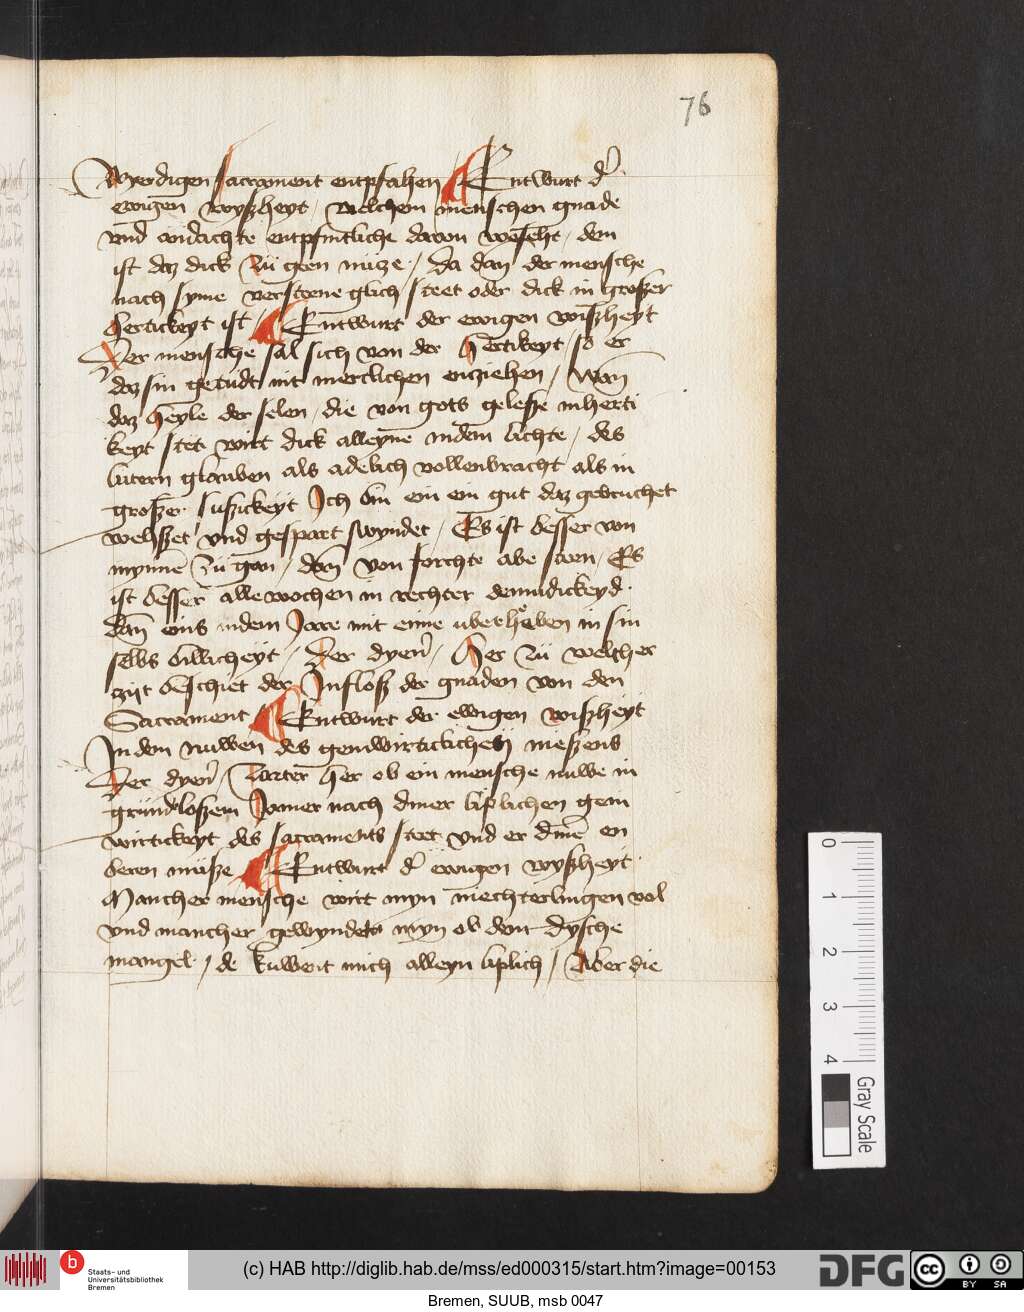 76
Wyerdigen sacrament entpfahen / Entwurt d'
ewigen wyßheyt / welchem menschen gnade
vnd andachte entpfintliche davon weseht / dem
ist daz dick zü geen nücze / Da dan der mensche
nach syme verstene glich steet oder dick in großer
hertickeyt ist / Entwurt der ewigen wißheyt
Der mensche sal sich von der hertikeyt / so er
daz sin getudt nit merclichen encziehen / Wan
daz heyle der selen / die von gots geleße in herti
keyt stet wirt dick alleyne in dem lichte / des
lutern glauben als adelich vollenbracht als in
großer sußickeyt Ich bin ein ein gut daz gebruchet
wehßet vnd gespart swyndet / Es ist besser von
mynne zü gan / dan von forchte abe steen / Es
ist besser alle wochen in rechter demudickeyd
dan eins in dem Jare mit eime uberhaben in sin
selbs billicheyt / Der dyen' / Her zü welcher
zijt beschiet der Infloß der gnaden von den
Sacrament Entwurt der ewigen wißheyt
In dem nuwen des genwirticlichen nießens
Der dyen' / Zarter her ob ein mensche nuwe in
gründeloßem Jamer nach diner liplichen gein
wirtickeyt des sacraments steet vnd er dine en
beren müße Entwurt d' ewigen wyßheyt
Mancher mensche wirt myn niechterlingen vol
vnd mancher gewyndets myn ob dem dysche
mangel / de kuwent mich alleyn liplich / Aber die
0
1
2
3
4
Gray Scale
b
Staats- und
Universitätsbibliothek
Bremen
(c) HAB http://diglib.hab.de/mss/ed000315/start.htm?image=00153
DFG
cc
BY SA
Bremen, SUUB, msb 0047